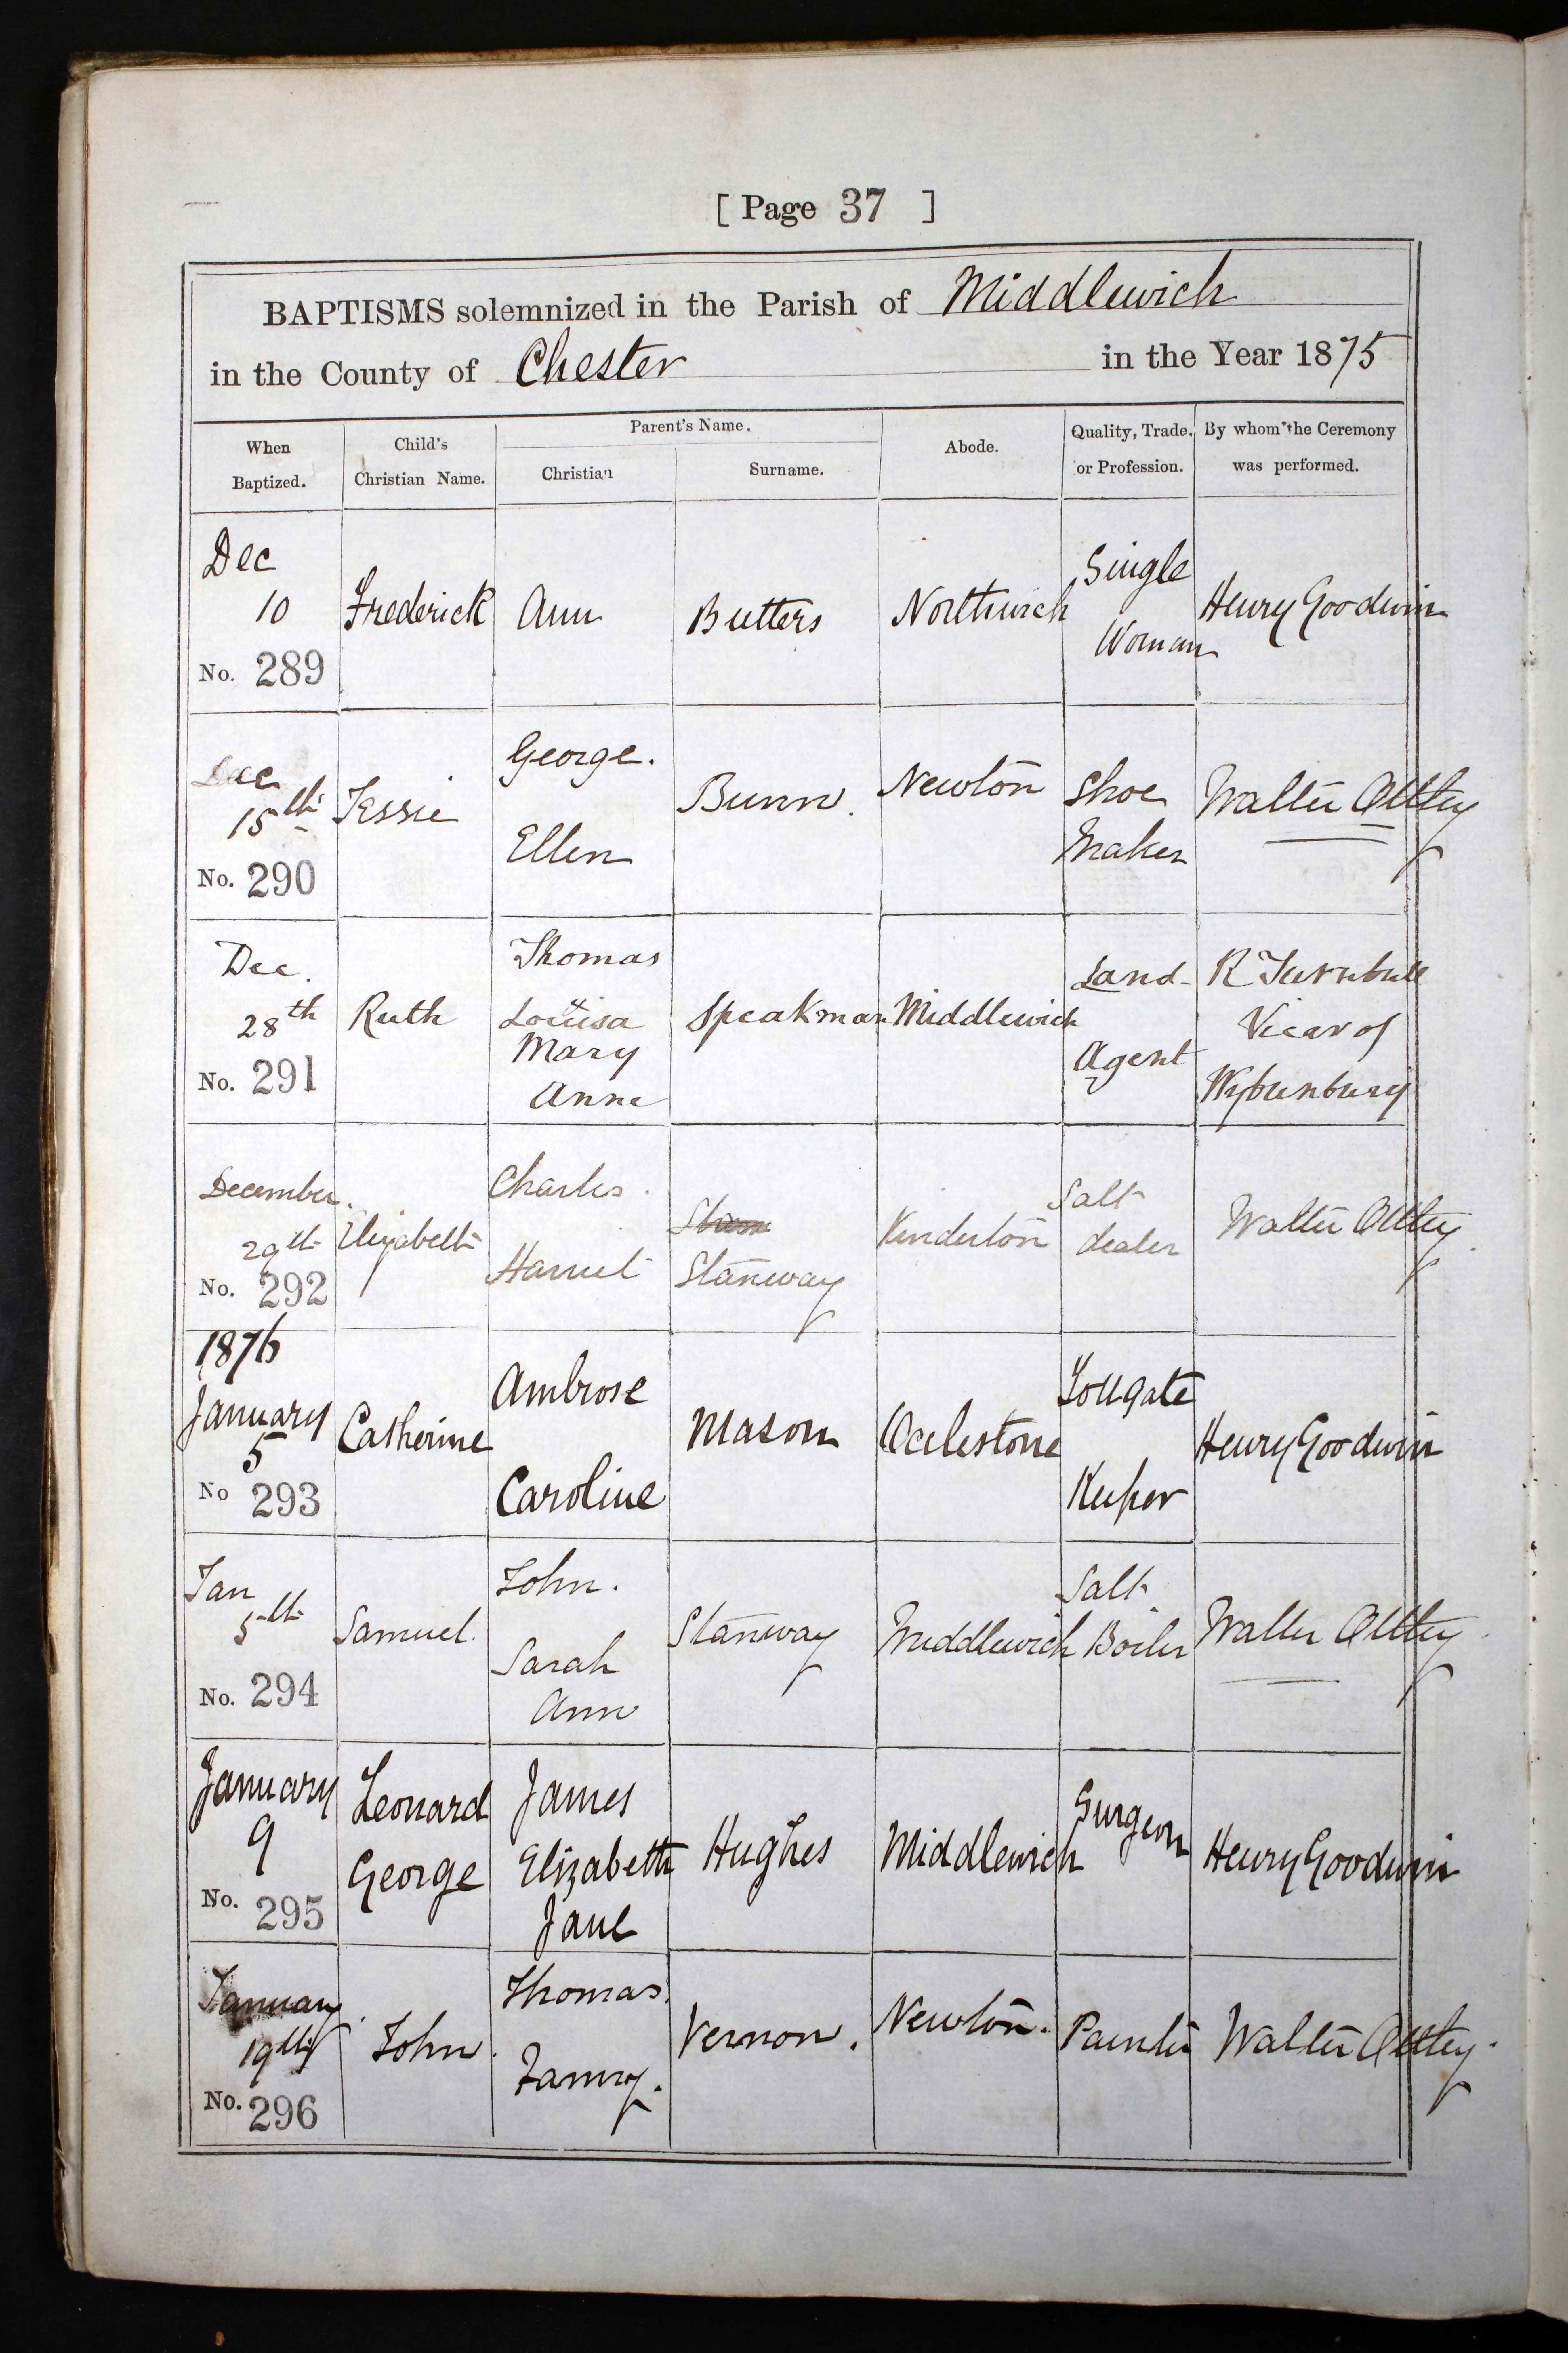 [ Page 37 ]
BAPTISMS solemnized in the Parish of Middlewich
in the County of Chester in the Year 1875
When Baptized. Child's Christian Name. Parent's Name. Christian Surname. Abode. Quality, Trade, or Profession. By whom the Ceremony was performed.
Dec
10
No. 289
Frederick
Ann
Butters
Northwich
Single
Woman
Henry Goodwin
Dec
15th
No. 290
Jessie
George.
Ellen
Bunn.
Newton
Shoe
Maker
Walter
Dec.
28th
No. 291
Ruth
Thomas
Louisa
Mary
Anne
Speakman
Middlewich
Land
Agent
R Turnbull
Vicar of
Wybunbury
December.
29th
No. 292
Elizabeth
Charles.
Harriet
Stanway
Kinderton
Salt
dealer
Walter
1876
January
5
No 293
Catherine
Ambrose
Caroline
Mason
Occlestone
Tollgate
Keeper
Henry Goodwin
Jan
5th
No. 294
Samuel.
John.
Sarah
Ann
Stanway
Middlewich
Salt
Boiler
Walter
January
9
No. 295
Leonard
George
James
Elizabeth
Jane
Hughes
Middlewich
Surgeon
Henry Goodwin
January
19th
No. 296
John.
Thomas.
Fanny.
Vernon.
Newton.
Painter
Walter